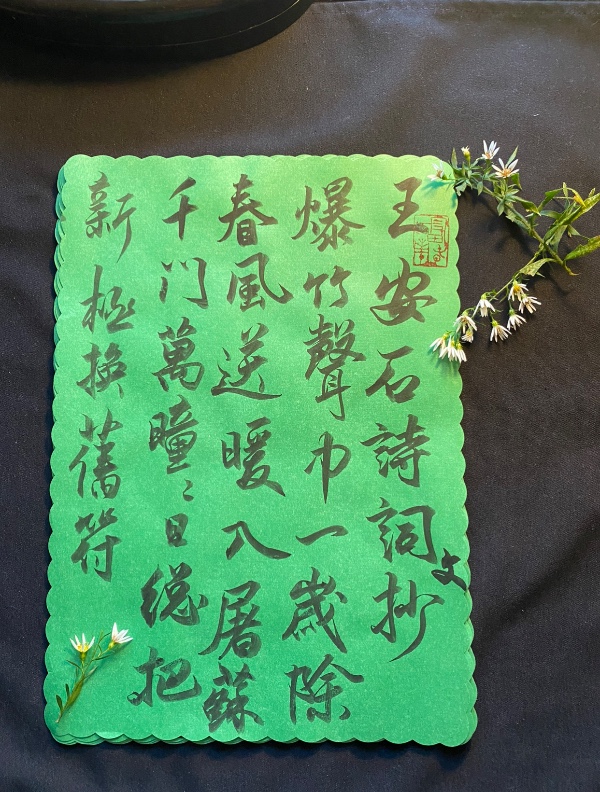 王安石詩詞文抄
爆竹聲中一歲除
春風送暖入屠蘇
千門萬瞳〻日總把
新桃換舊符